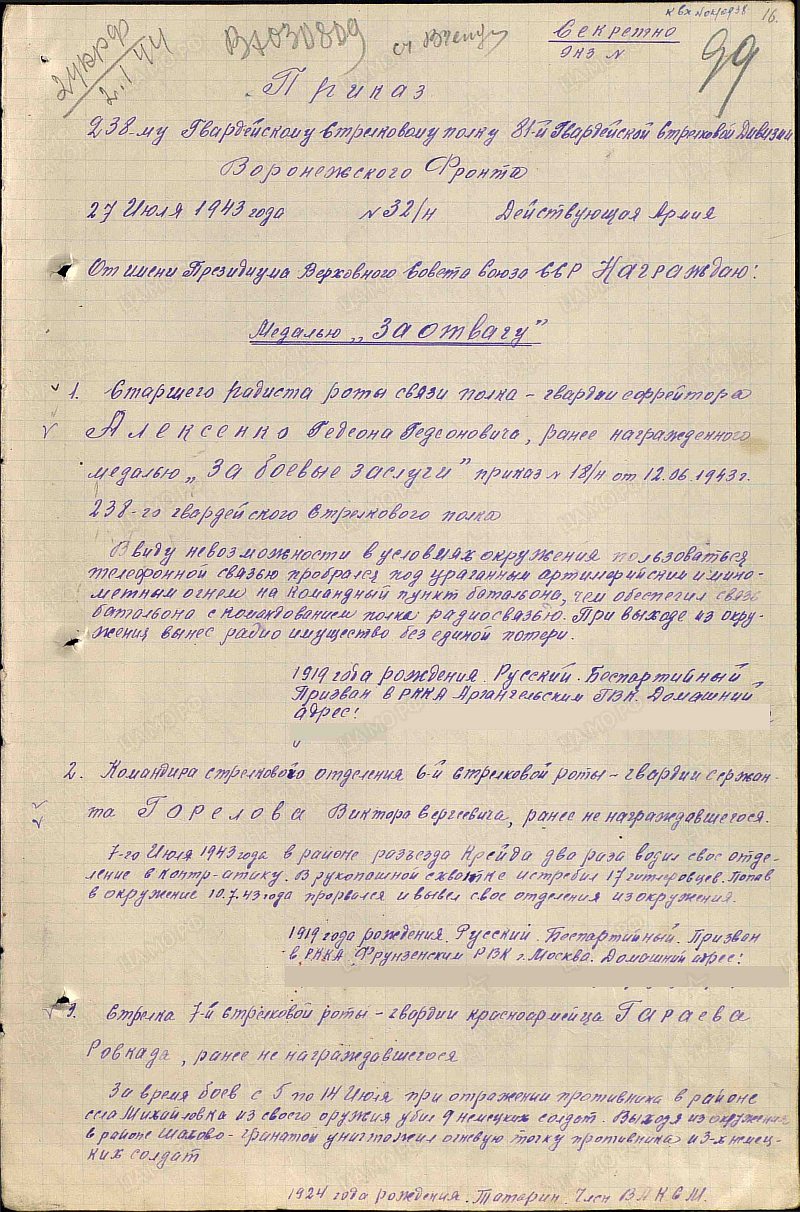 к вх № 040938 16.
Секретно
Экз №
99
24 крф
2.1 44
В7030809
Приказ
238-му Гвардейскому Стрелковому полку 81-й Гвардейской Стрелковой Дивизии
Воронежского Фронта
27 Июля 1943 года №32/н Действующая Армия
От имени Президиума Верховного Совета Союза ССР Награждаю:
Медалью „За отвагу"
1. Старшего радиста роты связи полка – гвардии ефрейтора
Алексенко Гедеона Гедеоновича, ранее награжденного
медалью „За боевые заслуги" приказ № 18/н от 12.06.1943 г.
238-го гвардейского Стрелкового полка
Ввиду невозможности в условиях окружения пользоваться
телефонной связью пробрался под ураганным артиллерийским и мино-
метным огнем на Командный пункт батальона, чем обеспечил связь
батальона с командованием полка радиосвязью. При выходе из окру-
жения вынес радио имущество без единой потери.
1919 года рождения. Русский. Беспартийный
Призван в РККА Архангельским ГВК. Домашний
адрес:
2. Командира стрелкового отделения 6-й стрелковой роты – гвардии сержан-
та Горелова Виктора Сергеевича, ранее не награждавшегося.
7-го Июля 1943 года в районе разъезда Крейда два раза водил свое отде-
ление в контр-атику. В рукопашной схватке истребил 17 гитлеровцев. Попав
в окружение 10.7.43 года прорвался и вывел свое отделения из окружения.
1919 года рождения. Русский. Беспартийный. Призван
в РККА Фрунзенским РВК г. Москва. Домашний адрес:
3. Стрелка 7-й стрелковой роты – гвардии красноармейца Гараева
Ровкада, ранее не награждавшегося
За время боев с 5 по 14 Июля при отражении противника в районе
села Михайловка из своего оружия убил 9 немецких солдат. Выходя из окружения
в районе Шахово – гранатой уничтожил огневую точку противника и 3-х немец-
ких солдат
1924 года рождения. Татарин. Член ВЛКСМ.